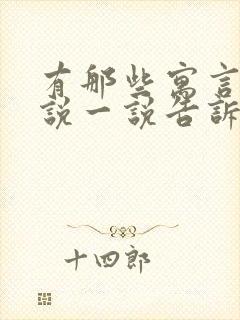 有那些寓言
说一说告訴
十四郎